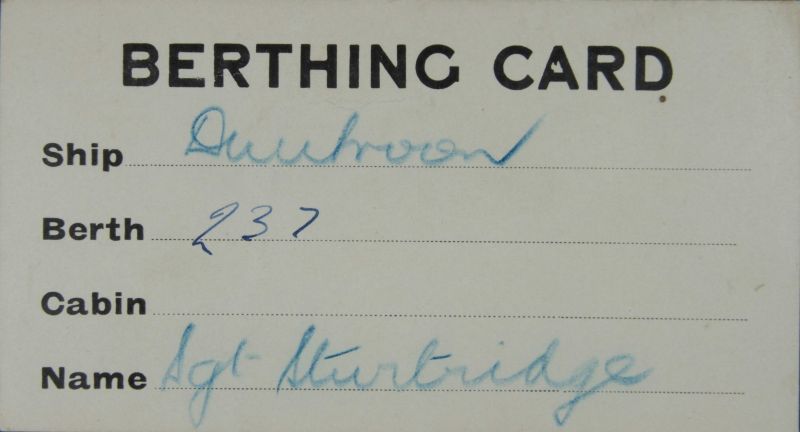 BERTHING CARD
Ship Duntroon
Berth 237
Cabin
Name Sgt Sturtridge